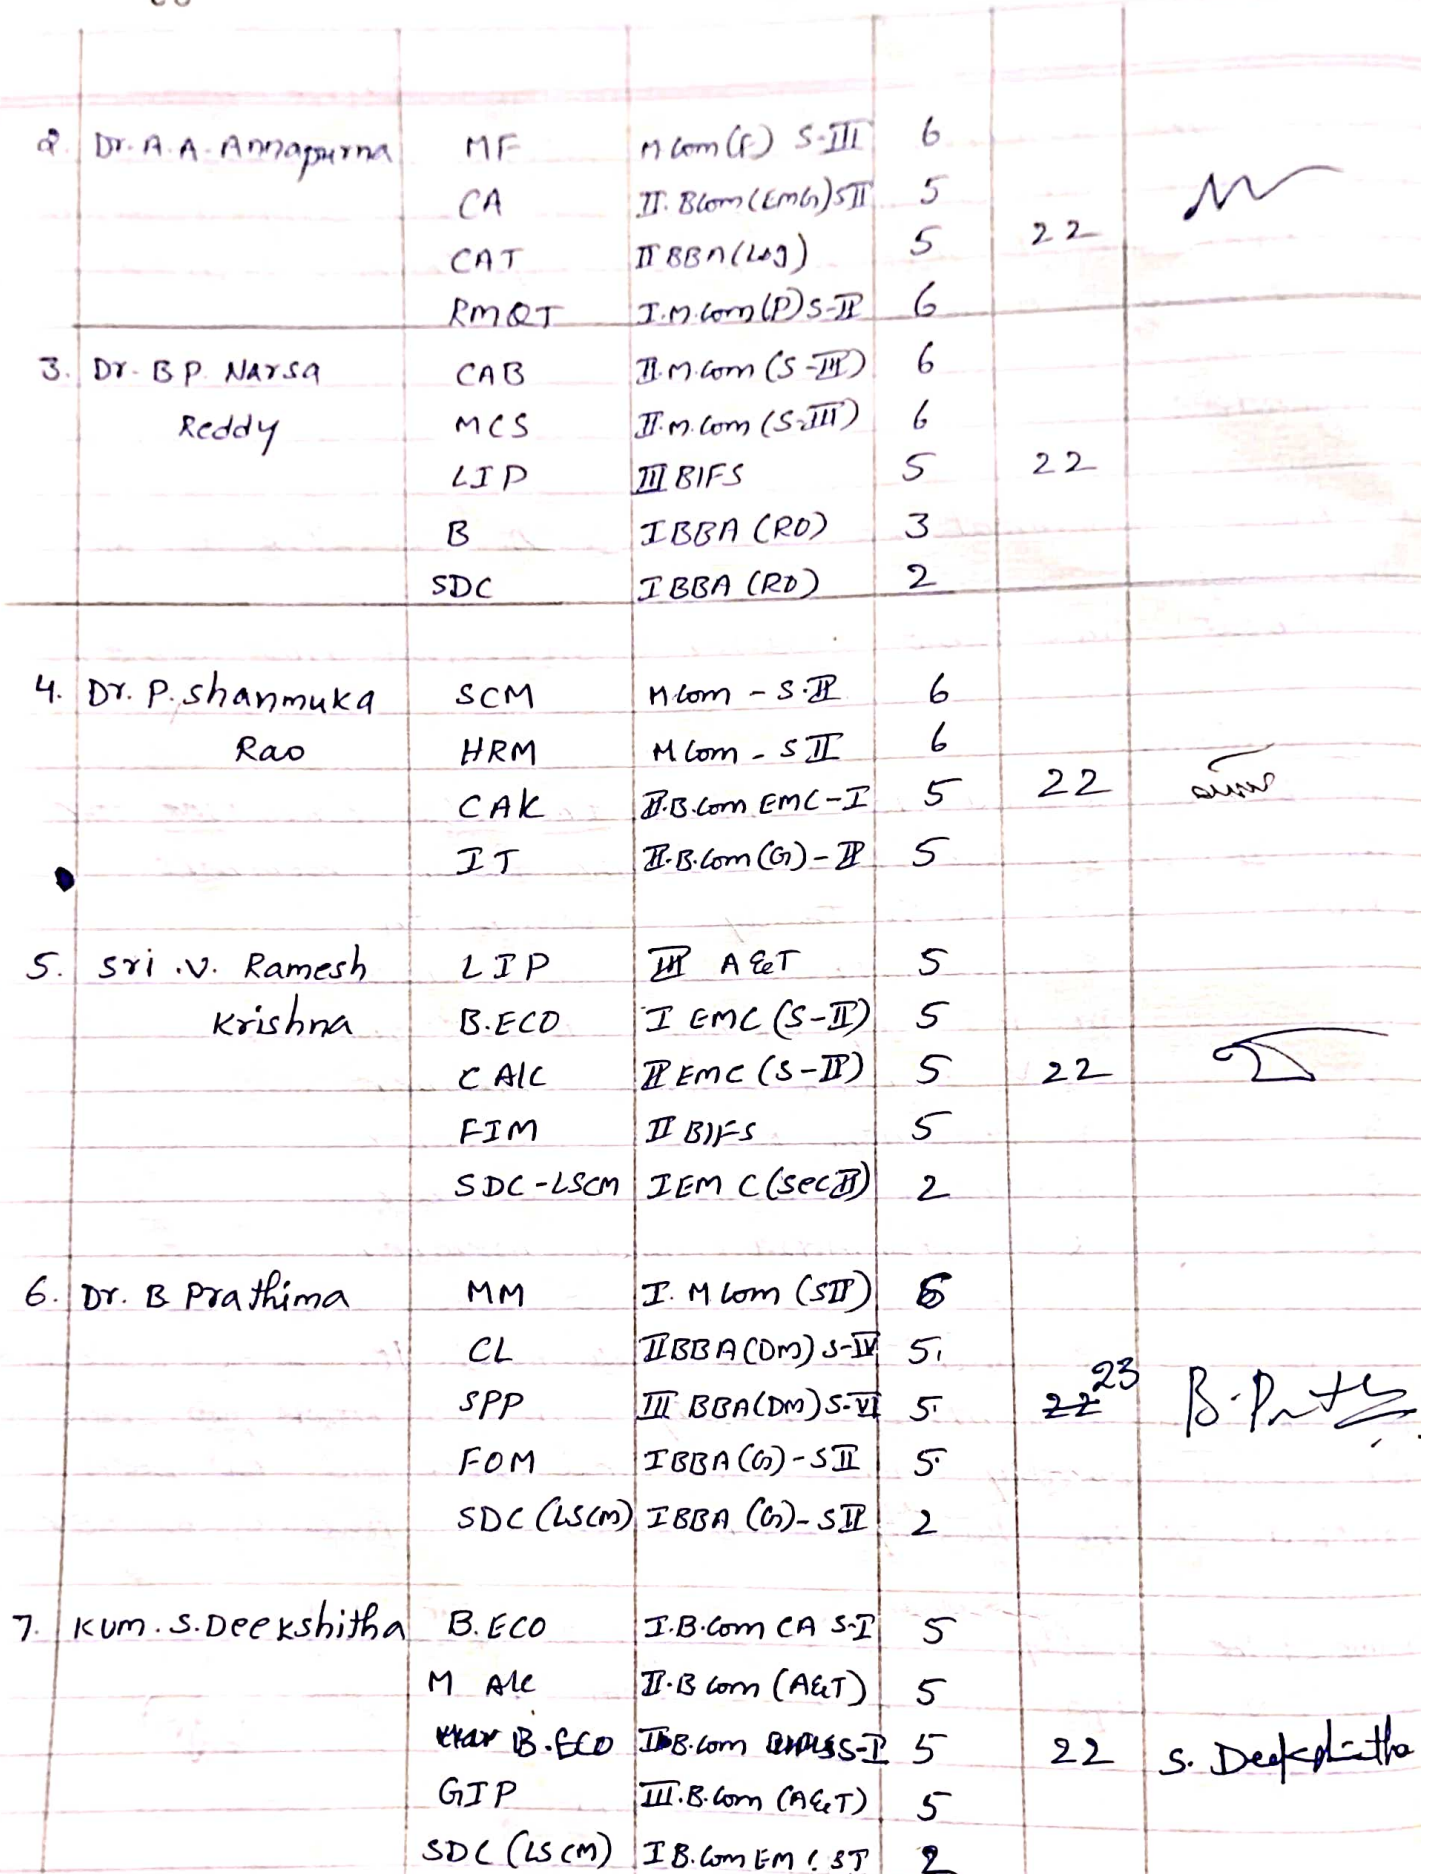 2. Dr. A. A. Annapurna MF M Com (F) S-III 6
CA II. BCom (EMG) SII 5
CAT II BBA (Log) 5 22
RMQT I. M. Com (P) S-II 6
3. Dr. B P. Narsa CAB II. M. Com (S-III) 6
Reddy MCS II. M. Com (S-III) 6
LIP III BIFS 5 22
B I BBA (RO) 3
SDC I BBA (RO) 2
4. Dr. P. Shanmuka SCM M Com - S-II 6
Rao HRM M Com - S II 6
CAK II. B. Com EMC-I 5 22
IT II. B. Com (G) - II 5
5. Sri .V. Ramesh LIP III A&T 5
Krishna B.ECO I EMC (S-II) 5
C A/c II EMC (S-II) 5 22
FIM II BIFS 5
SDC-LSCM I EM C (Sec II) 2
6. Dr. B Prathima MM I. M Com (SII) 6
CL II BBA (DM) S-IV 5
SPP III BBA (DM) S-VI 5 22 23 B. Prathi
FOM I BBA (G) - S II 5
SDC (LSCM) I BBA (G) - S II 2
7. Kum. S. Deekshitha B. ECO I. B. Com CA S-I 5
M A/c II. B Com (A&T) 5
B. ECO I B. Com S-I 5 22 S. Deekshitha
GIP III. B. Com (A&T) 5
SDC (LSCM) I B. Com EM 2